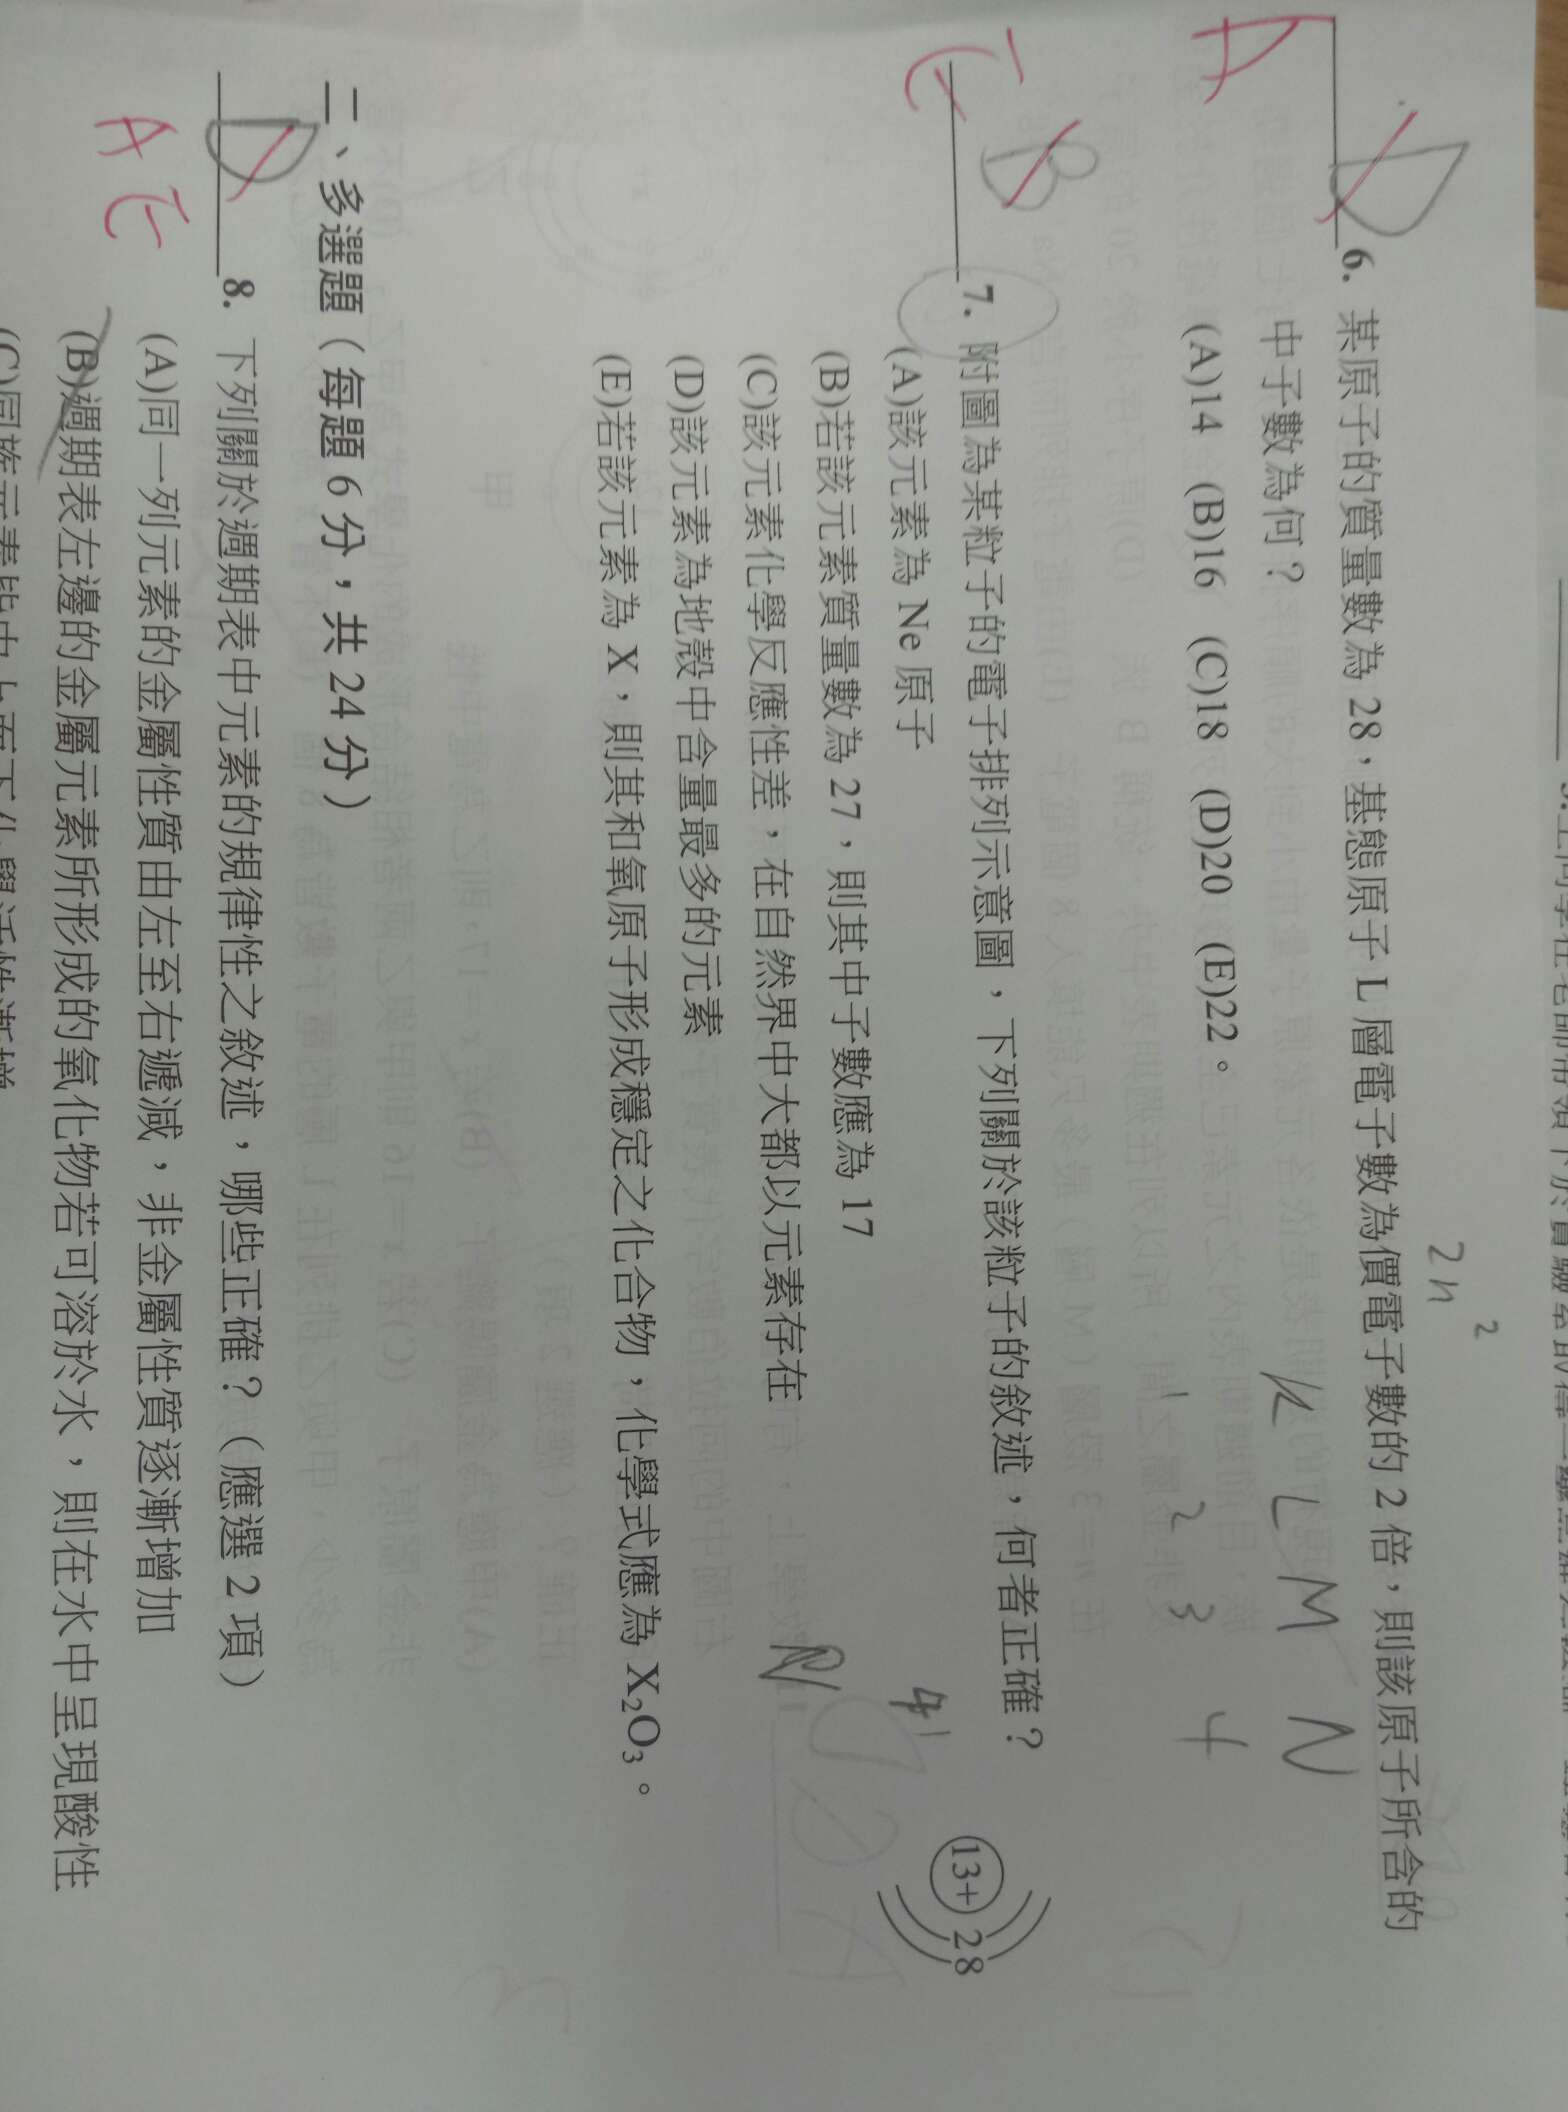 6. 某原子的質量數為 28，基態原子 L 層電子數為價電子數的 2 倍，則該原子所含的
中子數為何？
(A)14 (B)16 (C)18 (D)20 (E)22。
A D
2n²
K L M N
1 2 3 4
7. 附圖為某粒子的電子排列示意圖，下列關於該粒子的敘述，何者正確？
(A)該元素為 Ne 原子
(B)若該元素質量數為 27，則其中子數應為 17
(C)該元素化學反應性差，在自然界中大都以元素存在
(D)該元素為地殼中含量最多的元素
(E)若該元素為 X，則其和氧原子形成穩定之化合物，化學式應為 X₂O₃。
E B
13+ 2 8
二、多選題（每題 6 分，共 24 分）
D
A E
8. 下列關於週期表中元素的規律性之敘述，哪些正確？（應選 2 項）
(A)同一列元素的金屬性質由左至右遞減，非金屬性質逐漸增加
(B)週期表左邊的金屬元素所形成的氧化物若可溶於水，則在水中呈現酸性
(C)同族元素皆由上而下化學活性漸增